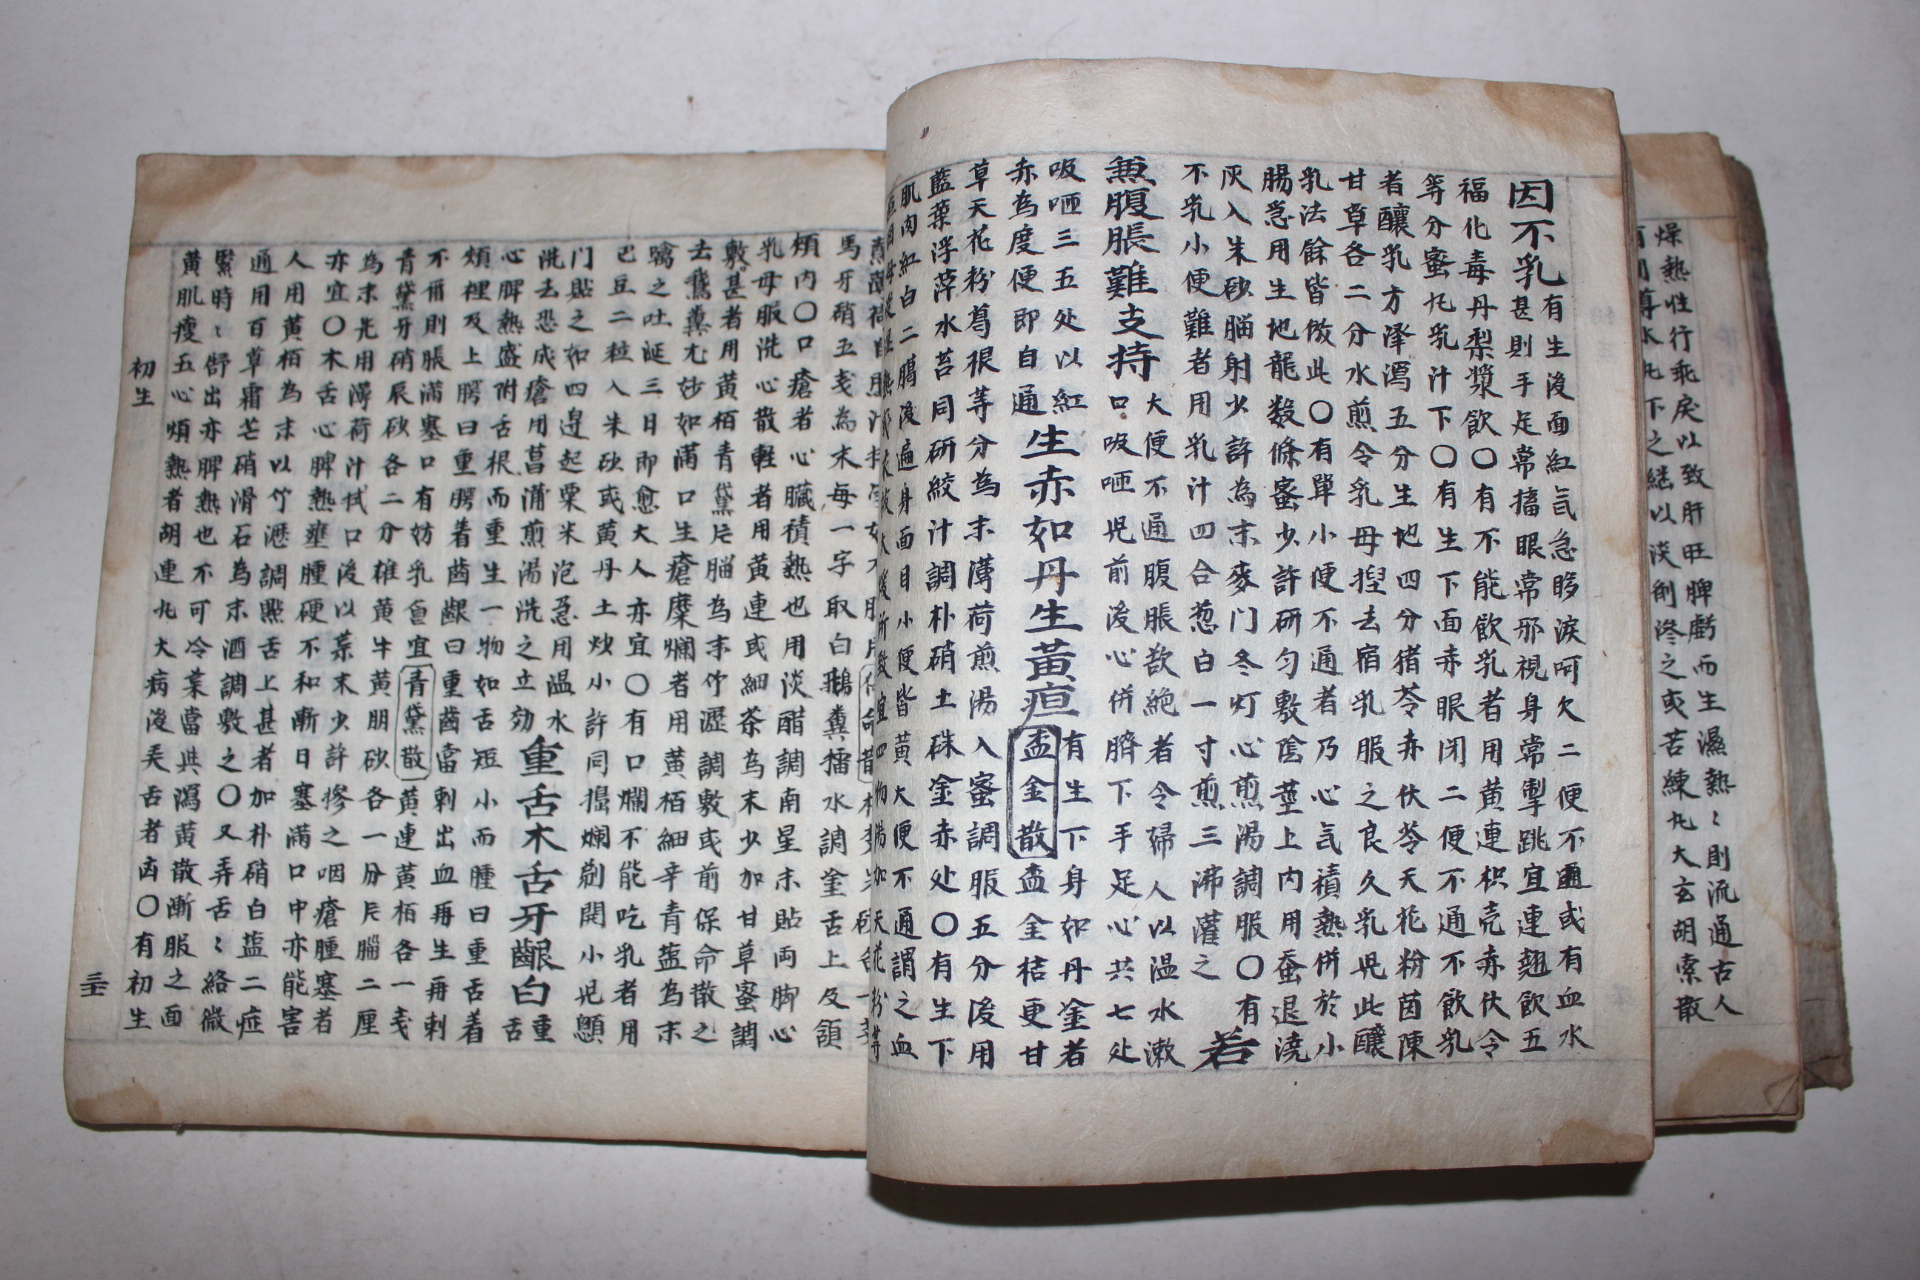 燥熱性行乖戾以致肝旺脾虧而生濕熱〻則流通古人
下之繼以淡劑滲之或苦練丸大玄胡索散
因不乳有生後面紅氣急眵淚呵欠二便不通或有血水
甚則手足常搐眼常邪視身常掣跳宜連翹飲五
福化毒丹梨漿飮〇有不能飮乳者用黃連枳壳赤伏令
等分蜜丸乳汁下〇有生下面赤眼閉二便不通不飮乳
者釀乳方泽瀉五分生地四分猪苓赤伏苓天花粉茵陳
甘草各二分水煎令乳母揑去宿乳服之良久乳兒此釀
乳法餘皆倣此〇有單小便不通者乃心气積熱併於小
腸急用生地龍数條蜜少許研匀敷陰莖上內用蚕退澆
灰入朱砂腦射少許為末麥门冬灯心煎湯調服〇有
不乳小便難者用乳汁四合葱白一寸煎三沸灌之 若
兼腹脹難支持大便不通腹脹欲絶者令婦人以温水漱
口吸咂兒前後心併臍下手足心共七处
吸咂三五处以紅
赤為度便即自通生赤如丹生黃疸有生下身如丹釡者
盃金散盃金桔更甘
草天花粉葛根等分為末薄荷煎湯入蜜調服五分後用
藍葉浮萍水苔同研絞汁調朴硝土硃釡赤处〇有生下
肌肉紅白二腸後遍身面目小便皆黃大便不通謂之血
馬牙硝五戔為末每一字取白鵝糞擂水調釡舌上及頷
頰內〇口瘡者心臟積熱也用淡醋調南星末貼両脚心
乳母服洗心散輕者用黃連或細茶為末少加甘草蜜調
敷甚者用黃栢青黛片腦為末竹瀝調敷或前保命散之
去鵞糞尤妙如滿口生瘡糜爛者用黃栢細辛青盐為末
噙之吐涎三日即愈大人亦宜〇有口爛不能吃乳者用
巴豆二粒入朱砂或黃丹土炒小許同搗爛剃開小兒顖
门貼之如四邉起粟米泡急用温水
洗去恐成瘡用菖蒲煎湯洗之立効重舌木舌牙齦白重舌
心脾熱盛附舌根而重生一物如舌短小而腫曰重舌着
頰裡及上腭曰重腭着齒齦曰重齒當刺出血再生再刺
不爾則脹滿塞口有妨乳食宜青黛散黃連黃栢各一戔
青黛牙硝辰砂各二分雄黃牛黃朋砂各一分片腦二厘
為末先用薄荷汁拭口後以藥末少許摻之咽瘡腫塞者
亦宜〇木舌心脾熱壅腫硬不和漸日塞滿口中亦能害
人用黃栢為末以竹瀝調㸃舌上甚者加朴硝白盐二症
通用百草霜芒硝滑石為末酒調敷之〇又弄舌〻絡微
緊時〻舒出亦脾熱也不可冷藥當與瀉黃散漸服之面
黃肌瘦五心煩熱者胡連丸大病後美舌者凶〇有初生
初生